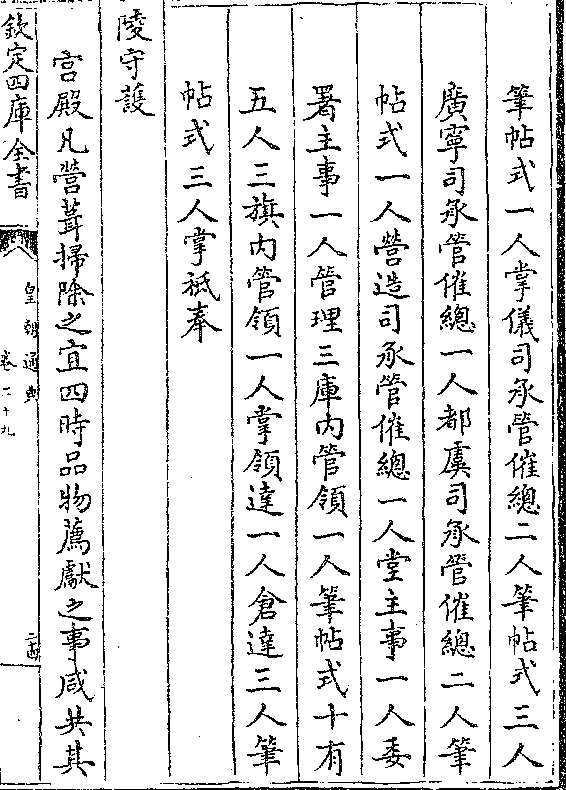 筆帖式一人掌儀司承管催總二人筆帖式三人
廣寧司承管催總一人都虞司承管催總二人筆
帖式一人營造司承管催總一人堂主事一人委
署主事一人管理三庫內管領一人筆帖式十有
五人三旗內管領一人掌領達一人倉達三人筆
帖式三人掌祗奉
陵守護
宮殿凡營葺掃除之宜四時品物薦獻之事咸共其
欽定四庫全書
皇朝通典
卷二十九